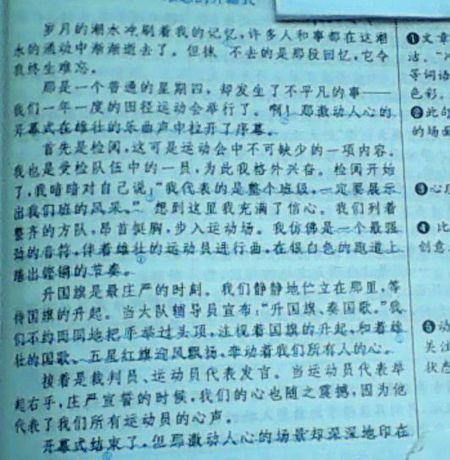 岁月的潮水冲刷着我的记忆，许多人和事都在这潮
水的涌动中渐渐逝去了。但抹 不去的是那段回忆，它令
我终生难忘。
那是一个普通的星期四，却发生了不平凡的事——
我们一年一度的田径运动会举行了。啊！那激动人心的
开幕式在雄壮的乐曲声中拉开了序幕。
首先是检阅，这可是运动会中不可缺少的一项内容。
我也是受检队伍中的一员，为此我格外兴奋。检阅开始
了，我暗暗对自己说：“我代表的是整个班级，一定要展示
出我们班的风采。” 想到这里我充满了信心。我们列着
整齐的方队，昂首挺胸，步入运动场。我仿佛是一个最强
劲的音符，伴着雄壮的运动员进行曲，在银白色的跑道上
踏出铿锵的节奏。
升国旗是最庄严的时刻。我们静静地伫立在那里，等
待国旗的升起。当大队辅导员宣布：“升国旗、奏国歌。”我
们不约而同地把手举过头顶，注视着国旗的升起，和着雄
壮的国歌，五星红旗迎风飘扬，牵动着我们所有人的心。
接着是裁判员、运动员代表发言。当运动员代表举
起右手，庄严宣誓的时候，我们的心也随之震撼，因为他
代表了我们所有运动员的心声。
开幕式结束了，但那激动人心的场景却深深地印在
❶文章
洁。
等词语
色彩。
❷此句
的场面
❸心
❹比
创意
❺动
关注
状态